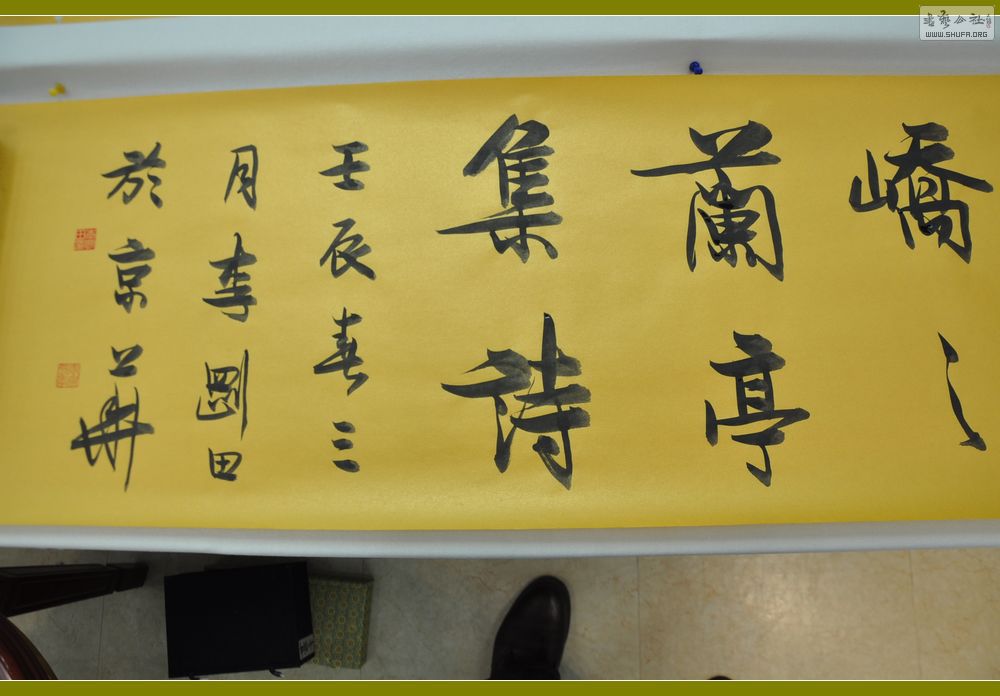 嶠之
蘭亭
集詩
壬辰春三
月李剛田
於京華
書藝公社
WWW.SHUFA.ORG